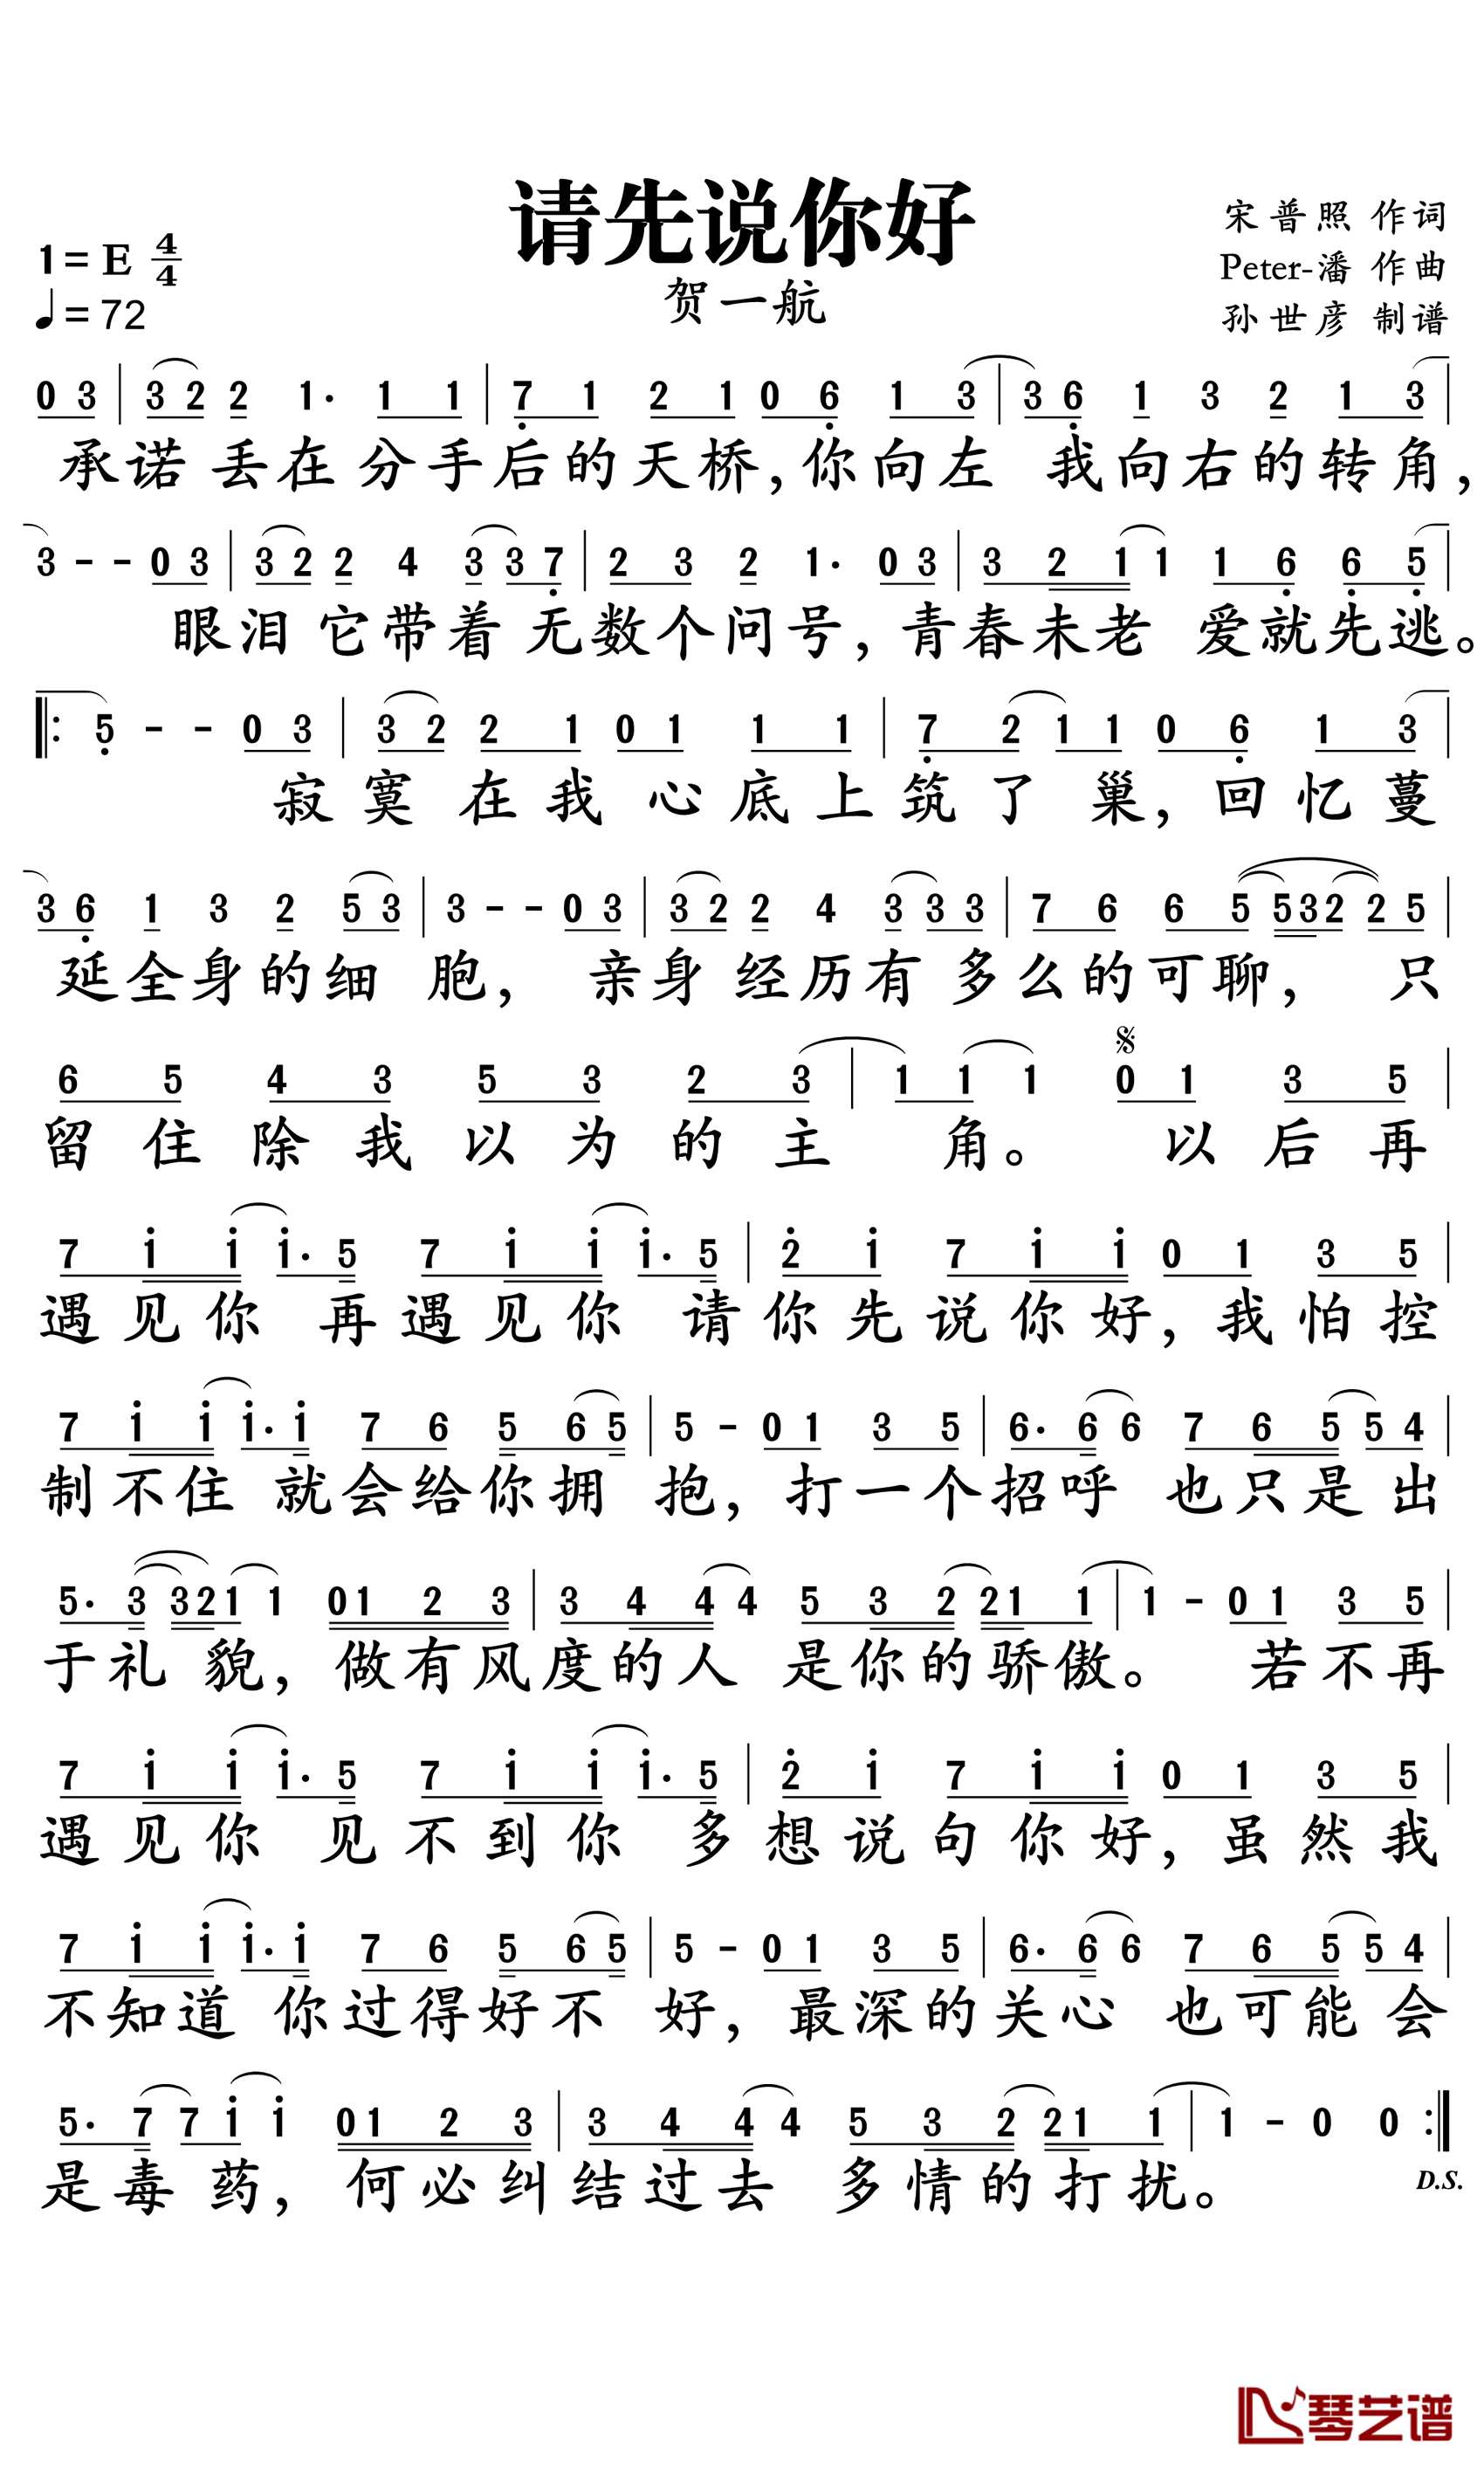 请先说你好
贺一航
宋普照 作词
Peter-潘 作曲
孙世彦 制谱
1=E 4/4
♩=72
0 3 | 3 2 2 1· 1 1 | 7 1 2 1 0 6 1 3 | 3 6 1 3 2 1 3 |
承诺 丢在分手后的天桥,你向左 我向右的转角,
3 - - 0 3 | 3 2 2 4 3 3 7 | 2 3 2 1· 0 3 | 3 2 1 1 1 6 6 5 |
眼泪 它带着 无数个问号,青春未老 爱就先逃。
|: 5 - - 0 3 | 3 2 2 1 0 1 1 1 | 7 2 1 1 0 6 1 3 |
寂寞在我心底上筑了巢,回忆蔓
3 6 1 3 2 5 3 | 3 - - 0 3 | 3 2 2 4 3 3 3 | 7 6 6 5 5 3 2 2 5 |
延全身的细 胞, 亲身 经历有 多么的可聊, 只
6 5 4 3 5 3 2 3 | 1 1 1 0 1 3 5 |
留住除我以为的主 角。 以后再
7 i i i· 5 7 i i i· 5 | 2 i 7 i i 0 1 3 5 |
遇见你 再遇见你 请你先说你好,我怕控
7 i i i· i 7 6 5 6 5 | 5 - 0 1 3 5 | 6· 6 6 7 6 5 5 4 |
制不住 就会给你拥 抱,打一个招呼 也只是出
5· 3 3 2 1 1 0 1 2 3 | 3 4 4 4 5 3 2 2 1 1 | 1 - 0 1 3 5 |
于礼 貌, 做有风度的人 是你的骄傲。 若不再
7 i i i· 5 7 i i i· 5 | 2 i 7 i i 0 1 3 5 |
遇见你 见不到你 多想说句你好,虽然我
7 i i i· i 7 6 5 6 5 | 5 - 0 1 3 5 | 6· 6 6 7 6 5 5 4 |
不知道 你过得好不 好,最深的关心 也可能会
5· 7 7 i i 0 1 2 3 | 3 4 4 4 5 3 2 2 1 1 | 1 - 0 0 :|
是毒药, 何必纠结过去 多情的打扰。
D.S.
琴艺谱